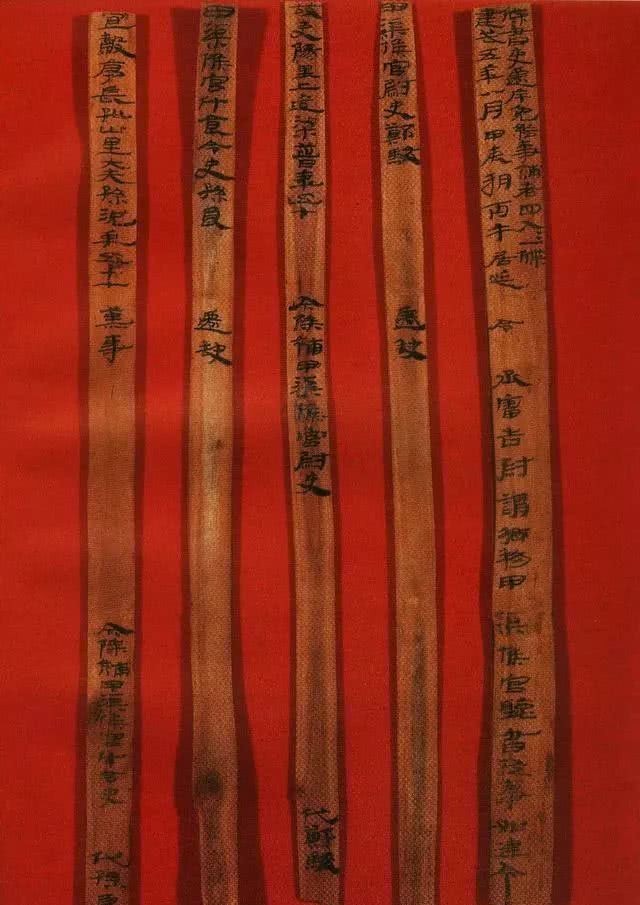 牒書吏遷斥免給事補者四人人一牒
建武五年八月甲辰朔丙午居延令 丞審告尉謂鄉移甲渠候官聽書從事如律令
甲渠候官尉史鄭駿 遷缺
故吏陽里上造梁普年五十 今除補甲渠候官尉史 代鄭駿
甲渠候官斗食令史孫良 遷缺
宜穀亭長孤山里大夫孫況年五十七 薰事 今除補甲渠候官斗食令史 代孫良